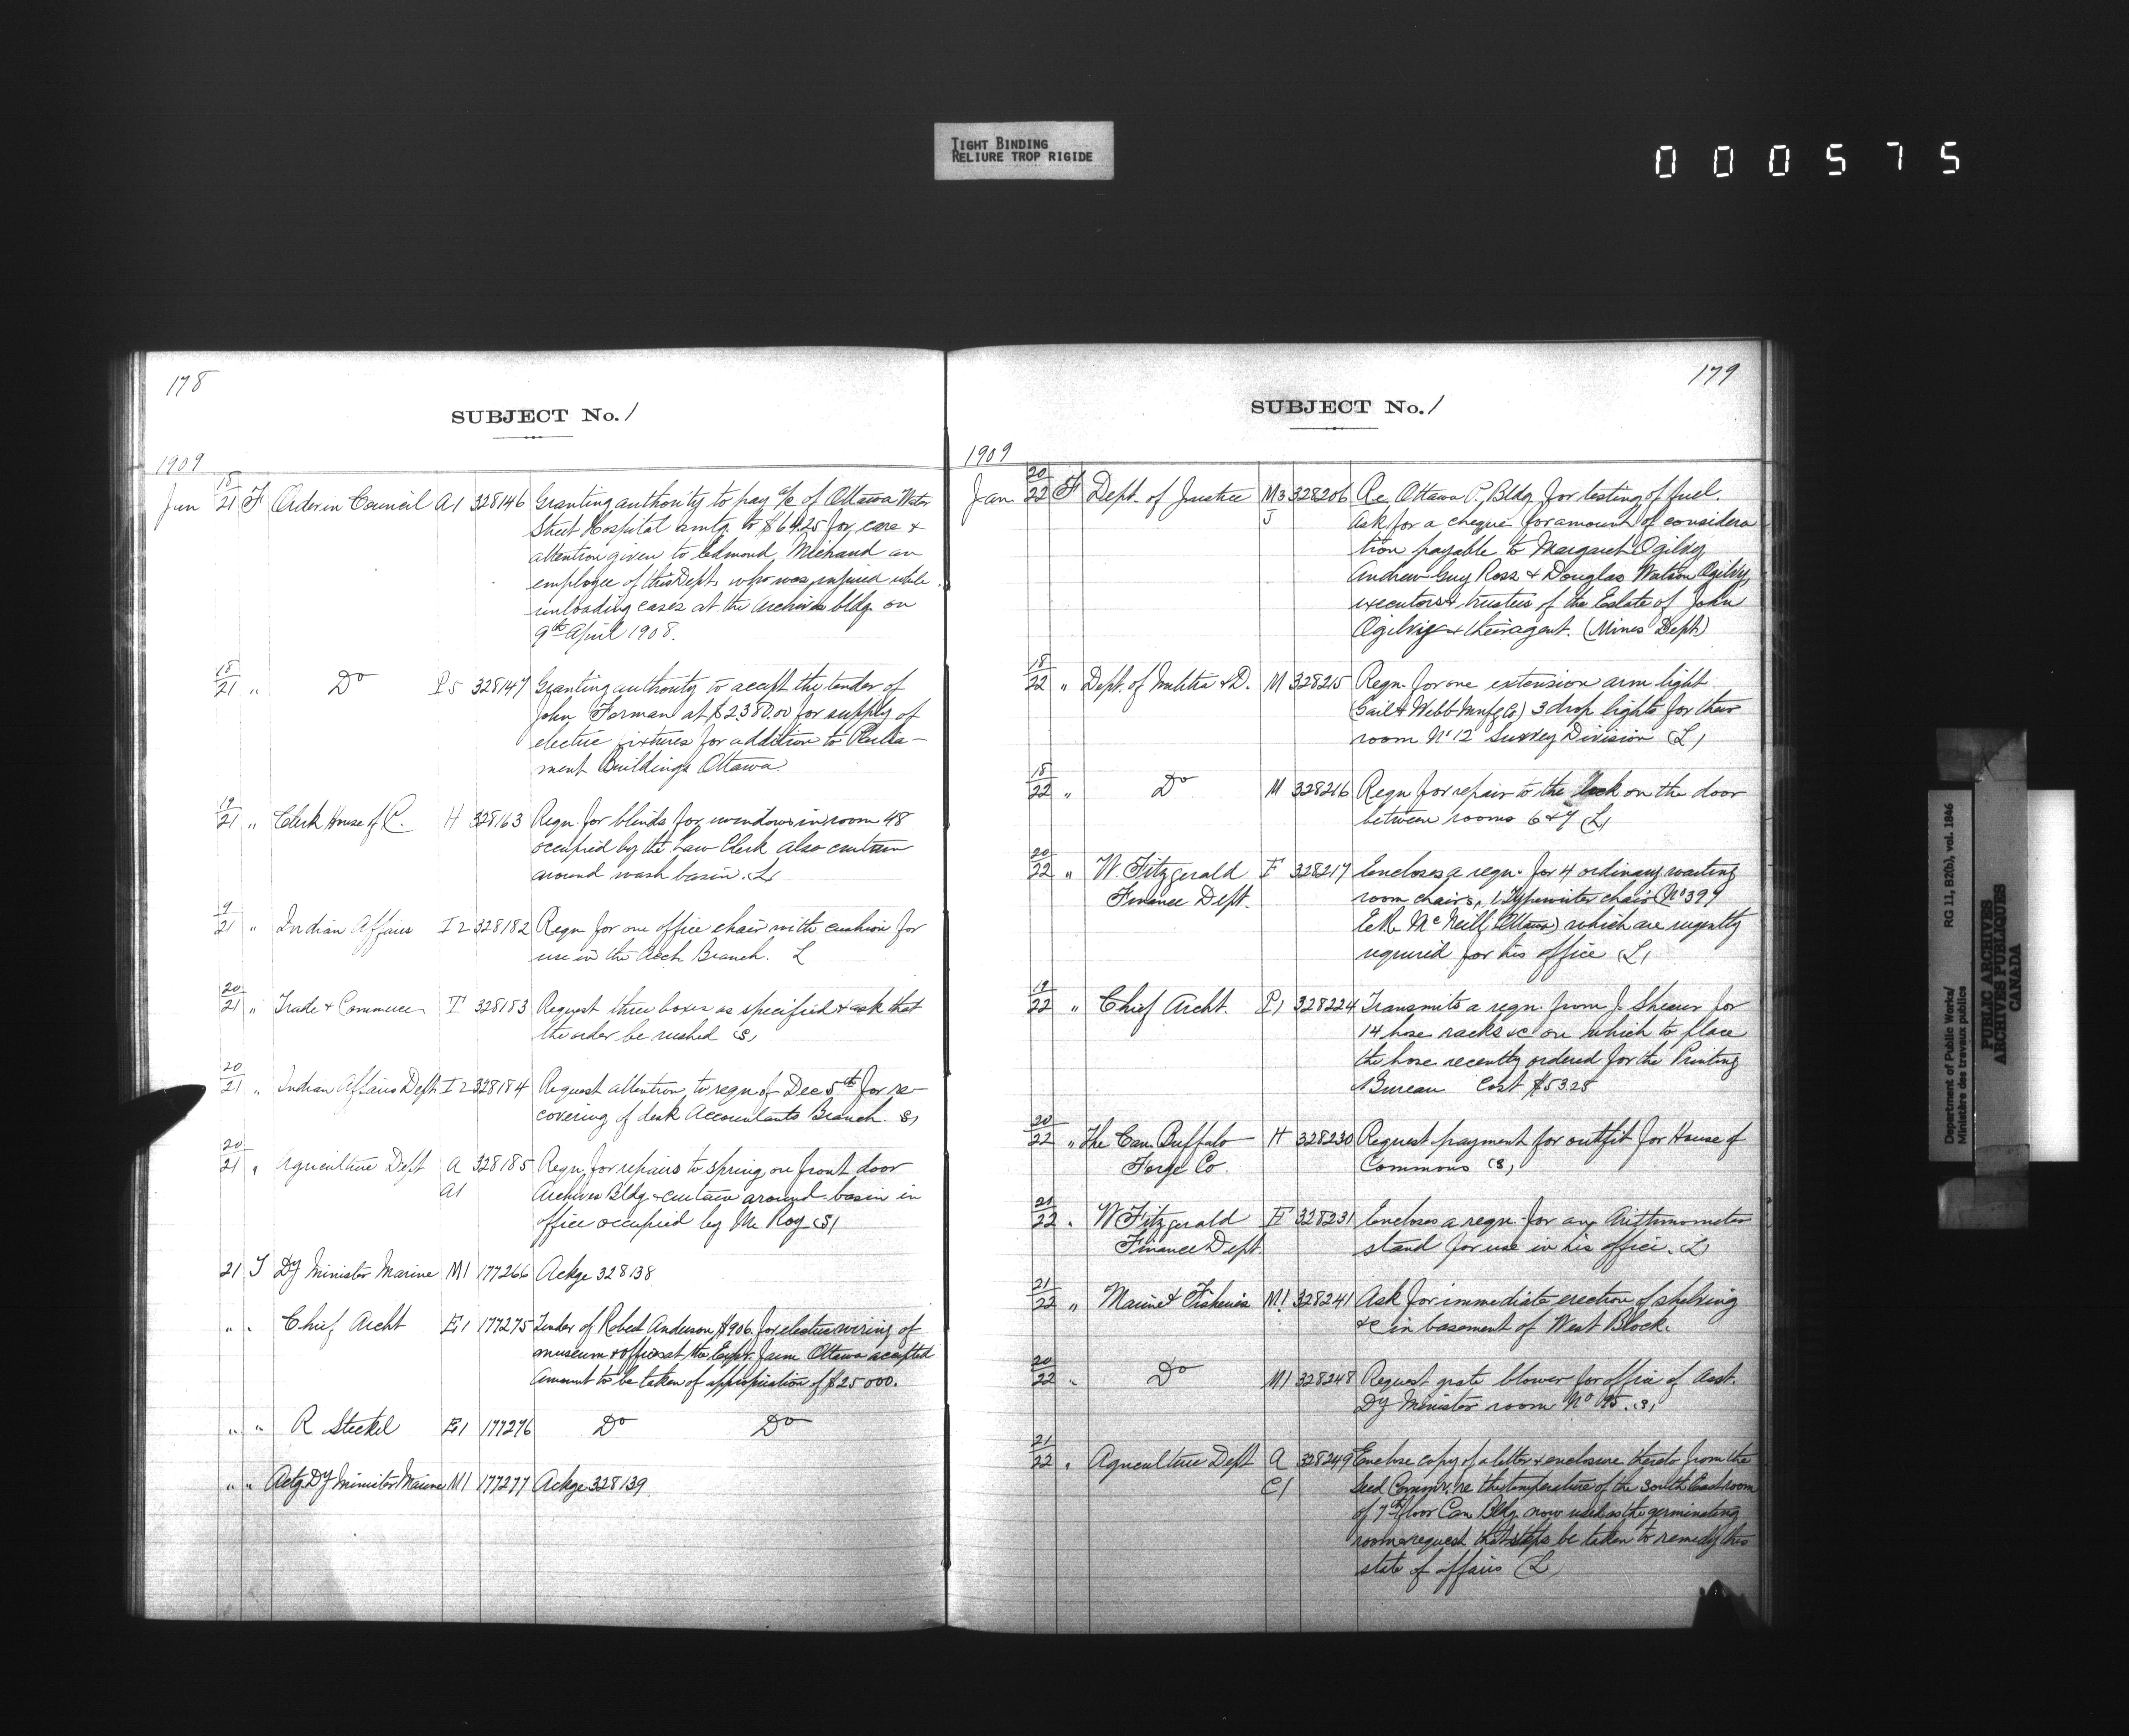 TIGHT BINDING
RELIURE TROP RIGIDE
000575
178
SUBJECT No. 1
1909
Jan 18/21 F Order in Council A1 328146 Granting authority to pay a/c of Ottawa Water
Street Hospital amtg. to $64.25 for care &
attention given to Edmond Michaud an
employee of this Dept. who was injured while
unloading cases at the Archives bldg on
9th April 1908.
18/21 " Do P5 328147 Granting authority to accept the tender of
John Forman at $2380.00 for supply of
electric fixtures for addition to Parlia-
ment Buildings Ottawa
19/21 " Clerk House of C. H 328163 Reqn. for blinds for windows in room 48
occupied by the Law Clerk also curtain
around wash basin. (L)
9/21 " Indian Affairs I2 328182 Reqn for one office chair with cushion for
use in the Arch Branch. L
20/21 " Trade & Commerce T 328183 Request three boxes as specified & ask that
the order be rushed (S)
20/21 " Indian Affairs Dept I2 328184 Request attention to reqn of Dec 5th for re-
covering of desk Accountants Branch. (S)
20/21 " Agriculture Dept A 328185 Reqn. for repairs to spring on front door
A1 Archives Bldg & curtain around basin in
office occupied by Mr Roy (S)
21 T Dy Minister Marine M1 177266 Ackge 328138
" " Chief Archt E1 177275 Tender of Robert Anderson, $906. for electric wiring of
museum & offices at the Exptl. Farm Ottawa accepted
Amount to be taken of appropriation of $25000.
" " R Steckel E1 177276 Do Do
" " Actg Dy Minister Marine M1 177277 Ackge 328139
179
SUBJECT No. 1
1909
Jan 20/22 F Dept. of Justice M3 328206 Re, Ottawa P. Bldg for testing of fuel.
J Ask for a cheque for amount of considera
tion payable to Margaret Ogilvy
Andrew Guy Ross & Douglas Watson Ogilvy,
executors & trustees of the Estate of John
Ogilvy & their agent. (Mines Dept)
18/22 " Dept. of Militia & D. M 328215 Reqn. for one extension arm light
& Webb Mnfg Co) 3 drop lights for their
room No 12 Survey Division (L)
18/22 " Do M 328216 Reqn for repair to the lock on the door
between rooms 6 & 7 (L)
20/22 " W. Fitzgerald F 328217 Encloses a reqn. for 4 ordinary waiting
Finance Dept. room chairs, 1 Typewriter chair (No 399
McNeill Ottawa) which are urgently
required for his office (L)
19/22 " Chief Archt. P1 328224 Transmits a reqn. from J. Shearer for
14 hose racks &c on which to place
the hose recently ordered for the Printing
Bureau Cost $53.25
20/22 " The Can. Buffalo H 328230 Request payment for outfit for House of
Forge Co. Commons (S)
21/22 " W Fitzgerald F 328231 Encloses a reqn. for an Arithmometer
Finance Dept. stand for use in his office. (L)
21/22 " Marine & Fisheries M1 328241 Ask for immediate erection of shelving
&c in basement of West Block.
20/22 " Do M1 328248 Request grate blower for office of Asst.
Dy Minister room No 195. (S)
21/22 " Agriculture Dept A 328249 Enclose copy of a letter & enclosure thereto from the
C1 Seed Commr. re the temperature of the South East room
of 7th floor Can. Bldg. now used as the germinating
room & request that steps be taken to remedy this
state of affairs (L)
Department of Public Works/
Ministère des travaux publics
RG 11, B2(b), vol. 1846
PUBLIC ARCHIVES
ARCHIVES PUBLIQUES
CANADA